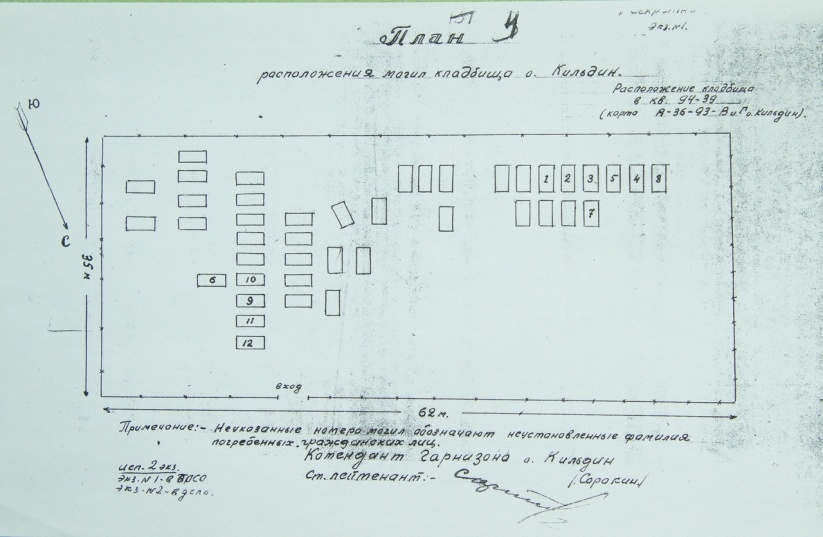 План
Экз. №1.
расположения могил кладбища о. Кильдин.
Расположение кладбища
в кв. 94-39
(карта А-36-93-В и Г о. Кильдин).
Ю
С
35 м
1 2 3 5 4 8
7
6 10
9
11
12
вход
62 м.
Примечание:- Неуказанные номера могил обозначают неустановленные фамилия
погребенных гражданских лиц.
Комендант Гарнизона о. Кильдин
Ст. лейтенант:- (Сорокин)
исп. 2 экз.
экз. №1 - в
экз. №2 - в дело.